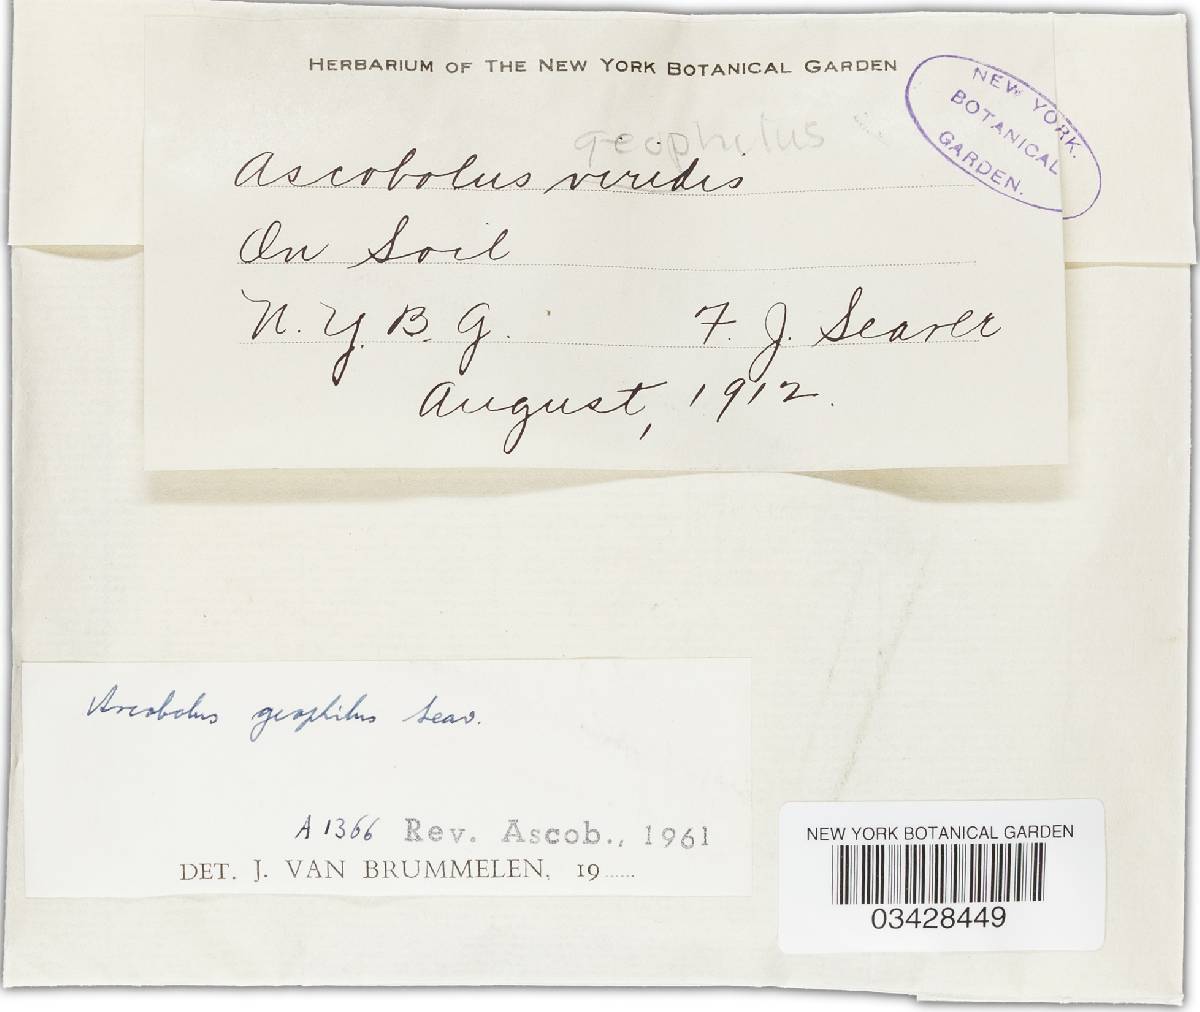 HERBARIUM OF THE NEW YORK BOTANICAL GARDEN
NEW YORK.
BOTANICAL
GARDEN.
geophilus
Ascobolus viridis
On Soil
N.Y.B.G. F. J. Seaver
August, 1912.
Ascobolus geophilus Seav.
A 1366 Rev. Ascob., 1961
DET. J. VAN BRUMMELEN, 19......
NEW YORK BOTANICAL GARDEN
03428449